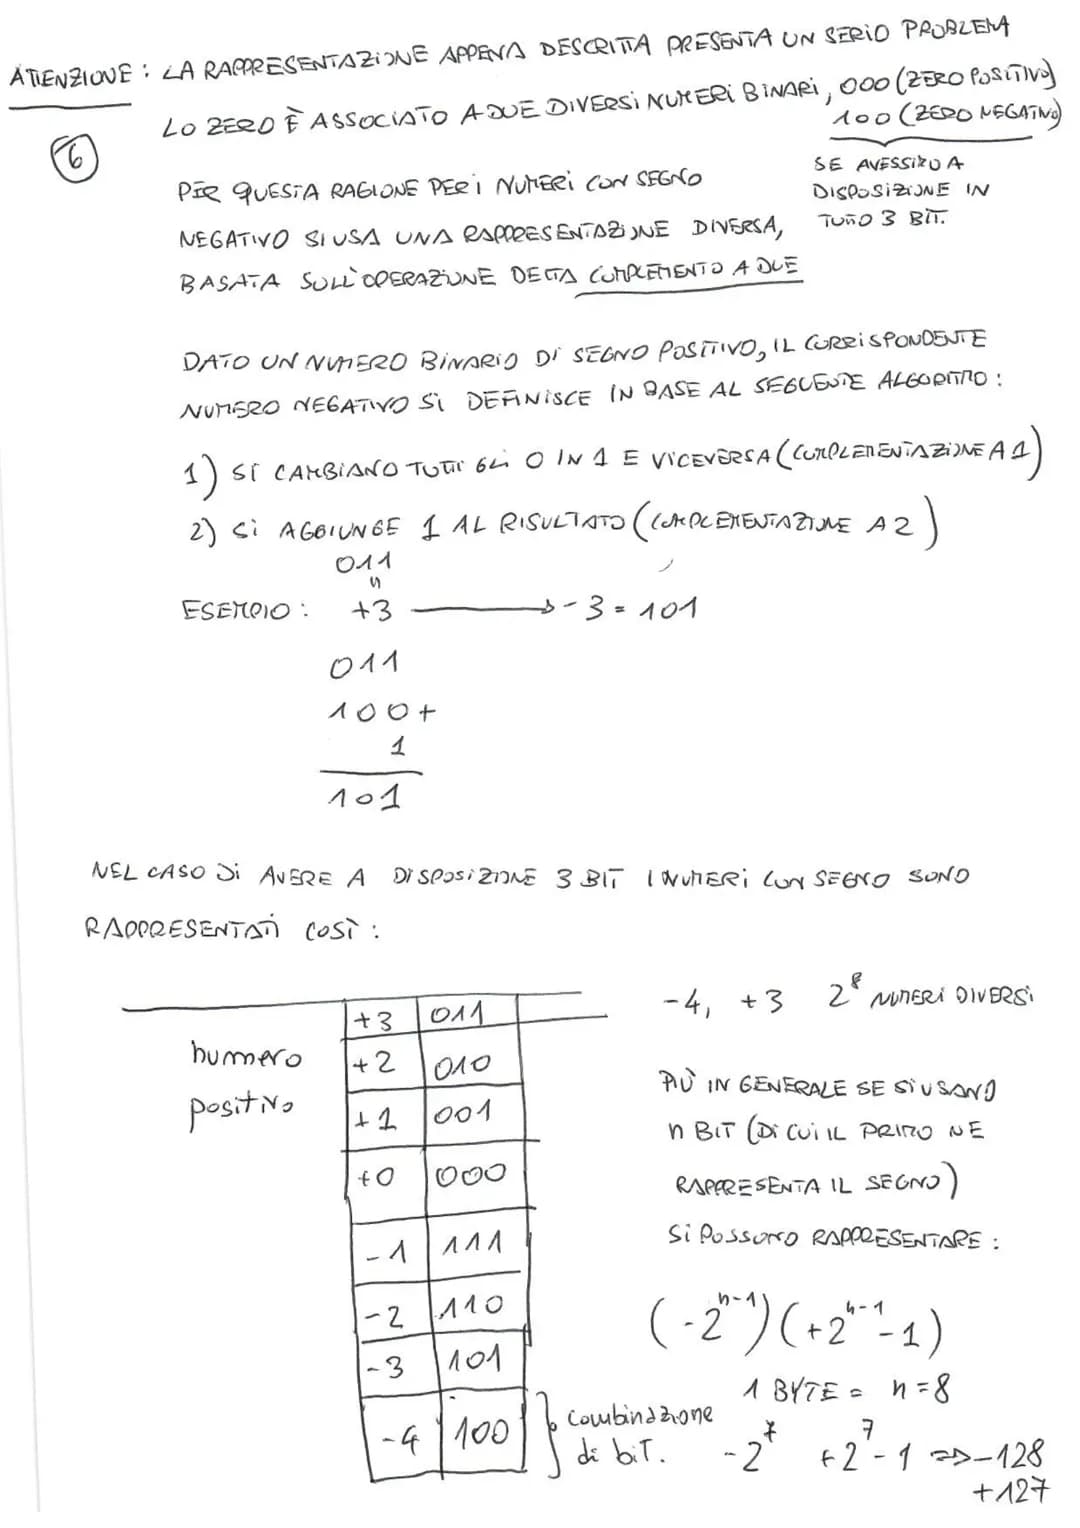 ATTENZIONE: LA RAPPRESENTAZIONE APPENA DESCRITTA PRESENTA UN SERIO PROBLEMA
LO ZERO È ASSOCIATO A DUE DIVERSI NUMERI BINARI, 000 (ZERO POSITIVO)
100 (ZERO NEGATIVO)
6
SE AVESSIMO A
DISPOSIZIONE IN
TUTTO 3 BIT.
PER QUESTA RAGIONE PER I NUMERI CON SEGNO
NEGATIVO SI USA UNA RAPPRESENTAZIONE DIVERSA,
BASATA SULL'OPERAZIONE DETTA COMPLEMENTO A DUE
DATO UN NUMERO BINARIO DI SEGNO POSITIVO, IL CORRISPONDENTE
NUMERO NEGATIVO SI DEFINISCE IN BASE AL SEGUENTE ALGORITMO:
1) SI CAMBIANO TUTTI GLI 0 IN 1 E VICEVERSA (COMPLEMENTAZIONE A 1)
2) SI AGGIUNGE 1 AL RISULTATO (COMPLEMENTAZIONE A 2)
011
"
ESEMPIO: +3 → -3 = 101
011
100+
1
101
NEL CASO DI AVERE A DISPOSIZIONE 3 BIT I NUMERI CON SEGNO SONO
RAPPRESENTATI COSÌ:
numero
positivo
+3 011
+2 010
+1 001
+0 000
-1 111
-2 110
-3 101
-4 100
combinazione
di biT.
-4, +3 2⁸ NUMERI DIVERSI
PIÙ IN GENERALE SE SI USANO
n BIT (DI CUI IL PRIMO NE
RAPPRESENTA IL SEGNO)
SI POSSONO RAPPRESENTARE:
(-2ⁿ⁻¹) (+2ⁿ⁻¹-1)
1 BYTE = n=8
-2⁷ +2⁷-1 => -128
+127